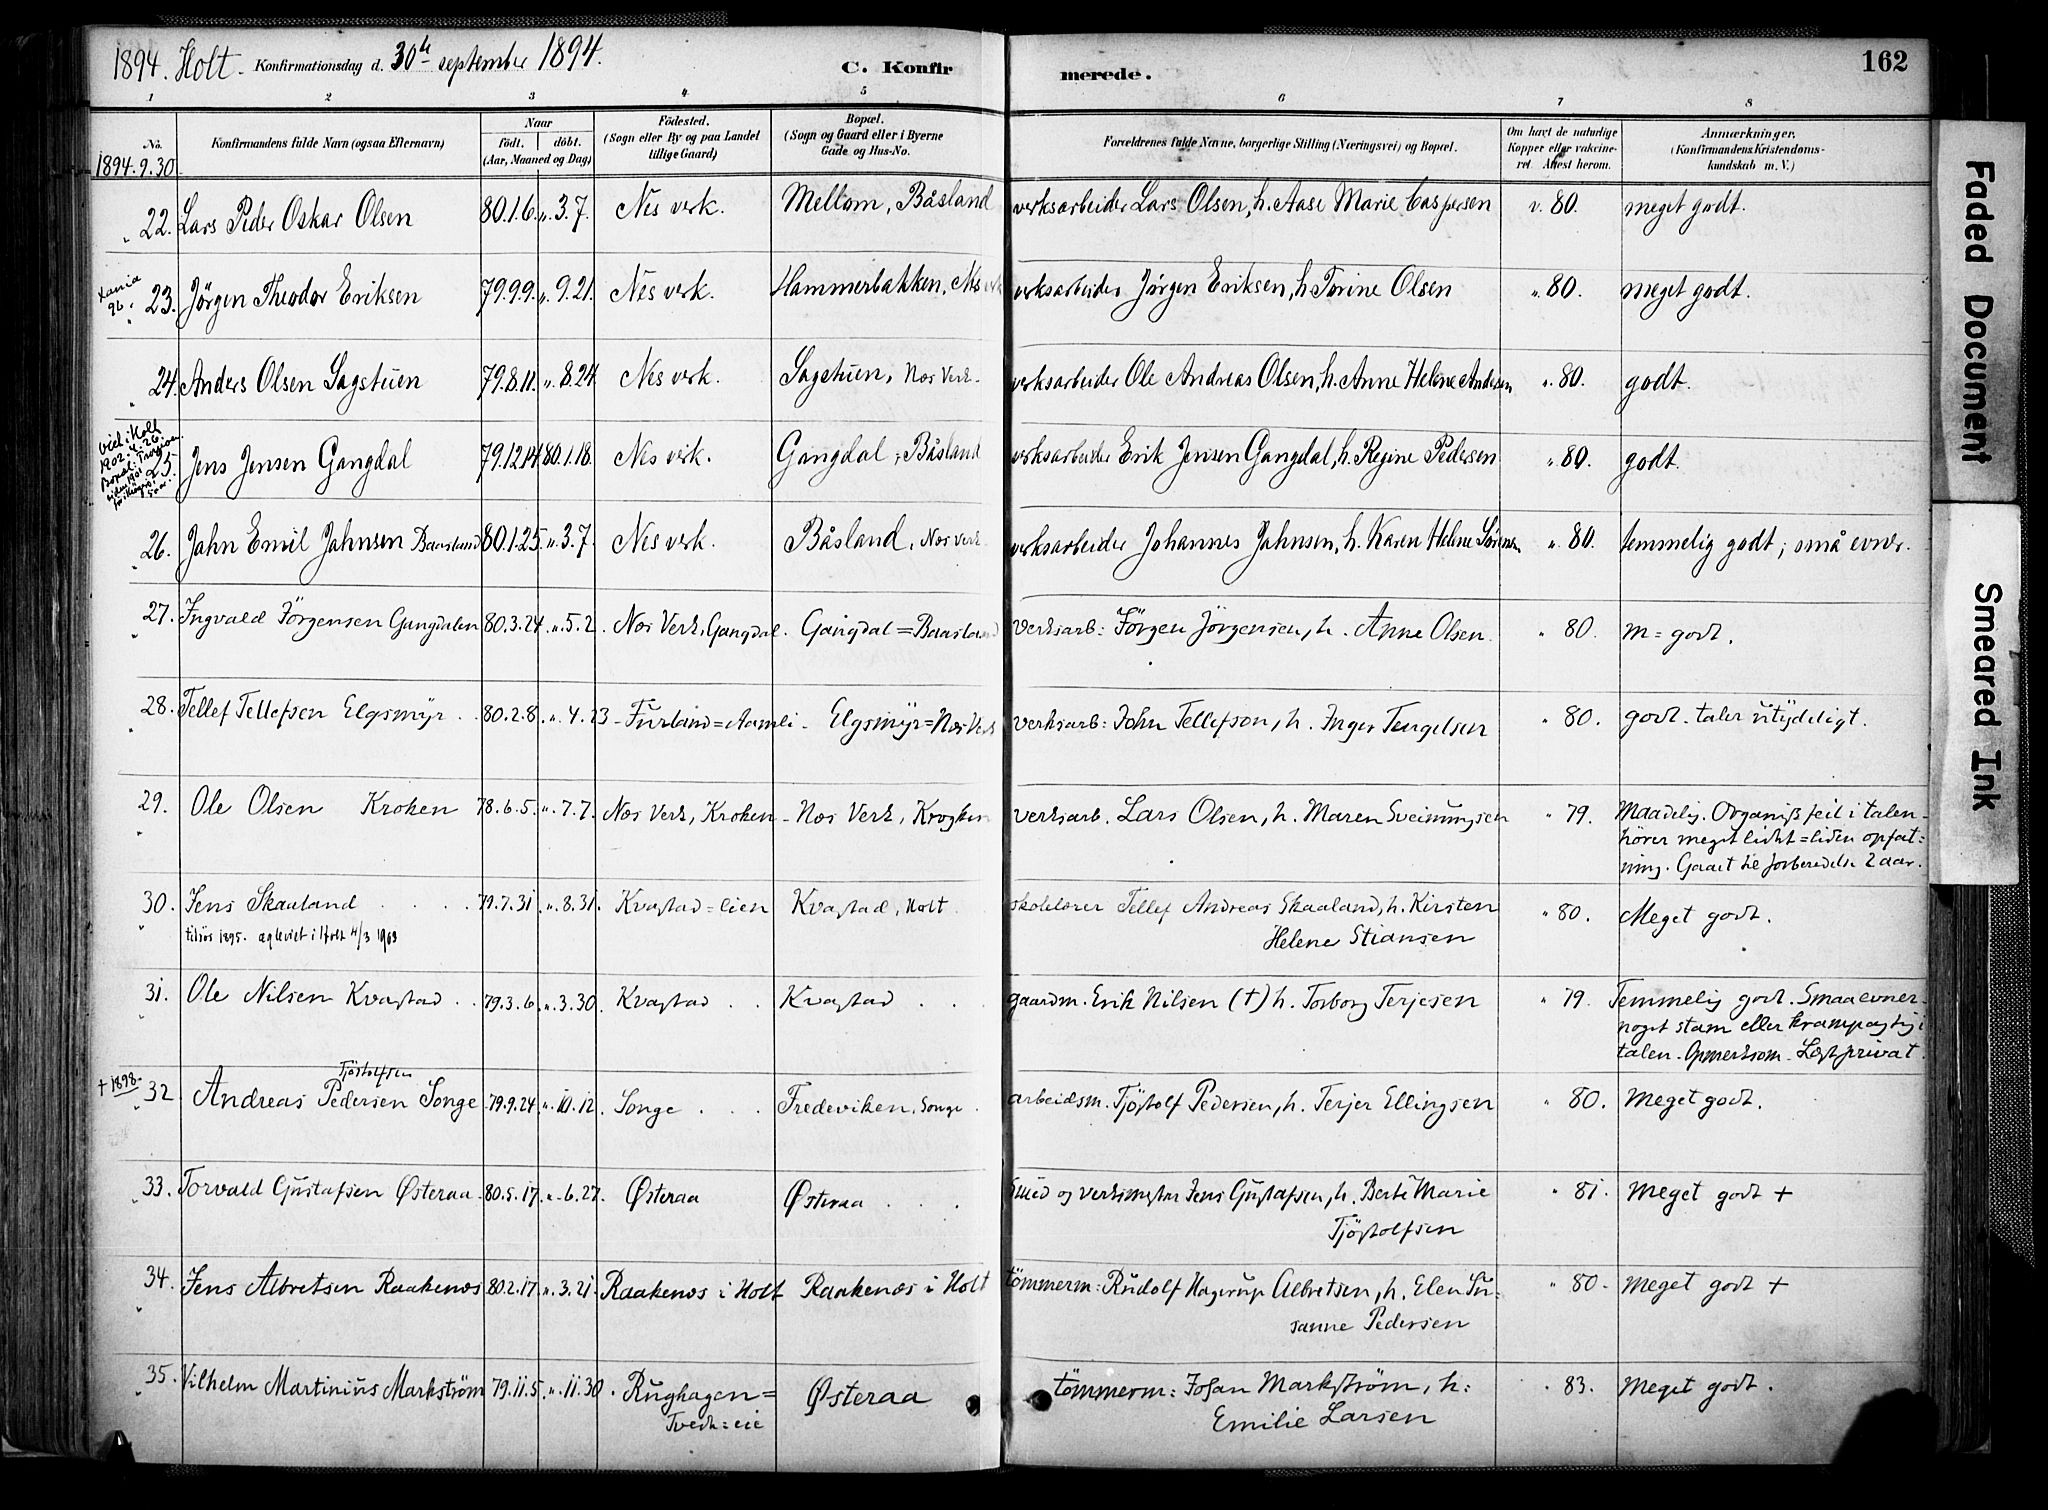 1894. Holt. Konfirmationsdag d. 30te september 1894.
C. Konfirmerede.
162
1 2 3 4 5 6 7 8
No. Konfirmandens fulde Navn (ogsaa Efternavn) Naar födt. döbt. (Aar, Maaned og Dag) Födested. (Sogn eller By og paa Landet tillige Gaard) Bopæl. (Sogn og Gaard eller i Byerne Gade og Hus-No. Forældrenes fulde Navne, borgerlige Stilling (Næringsvei) og Bopæl. Om havt de naturlige Kopper eller vaccineret. Attest herom. Anmærkninger. (Konfirmandens Kristendomskundskab m. V.)
1894.9.30
22. Lars Peder Oskar Olsen 80.1.6. „ 3.7. Nes verk. Mellom, Båsland verksarbeider Lars Olsen, h. Aase Marie Caspersen v. 80. meget godt.
23. Jørgen Theodor Eriksen 79.9.9. „ 9.21. Nes verk. Hammerbakken, Nes verk verksarbeider Jørgen Eriksen, h. Torine Olsen „ 80. meget godt.
96.
24. Anders Olsen Sagstuen 79.8.11. „ 8.24 Nes verk. Sagstuen, Nes Verk. verksarbeider Ole Andreas Olsen, h. Anne Helene Andersen „ 80. godt.
viet i Holt
1902.4.26.
25. Jens Jensen Gangdal 79.12.14 80.1.18. Nes verk. Gangdal, Båsland verksarbeider Erik Jensen Gangdal, h. Regine Pedersen „ 80. godt.
26. Jahn Emil Jahnsen Baasland 80.1.25. „ 3.7. Nes verk. Båsland, Nes Verk verksarbeider Johannes Jahnsen, h. Karen Helene Sörensen „ 80. temmelig godt; små evner.
27. Ingvald Jörgensen Gangdalen 80.3.24 „ 5.2. Nes Verk, Gangdal. Gangdal = Baasland verksarb: Jörgen Jörgensen, h. Anne Olsen. „ 80. m = godt.
28. Tellef Tellefsen Elgsmyr 80.2.8. „ 4.13 Furland = Aamli Elgsmyr = Nes Verk verksarb: John Tellefson, h. Inger Tergelsen „ 80. godt. taler utydeligt.
29. Ole Olsen Kroken 78.6.5. „ 7.7. Nes Verk, Kroken Nes Verk, Krogken verksarb. Lars Olsen, h. Maren Sveinungsen „ 79. Maadelig. Organisk feil i talen -
hører meget lidt = liden opfat=
ning. Gaaet til forberedelse 2 aar.
30. Jens Skaaland 79.7.31 „ 8.31. Kvastad = eien Kvastad, Holt skolelærer Tellef Andreas Skaaland, h. Kirsten Helene Stiansen „ 80. Meget godt.
tilsjøs 1895. ægteviet i Holt 4/3 1903
31. Ole Nilsen Kvastad 79.3.6. „ 3.30. Kvastad Kvastad gaardm. Erik Nilsen (†) h. Torborg Terjesen „ 79. Temmelig godt. Smaa evner.
noget stam eller krampagtig i
talen. Opmerksom. Læst privat.
† 1898.
32 Andreas Tjöstolfsen Pedersen Songe 79.9.24 „ 10.12. Songe Fredeviken, Songe arbeidsm. Tjöstolf Pedersen, h. Terjer Ellingsen „ 80. Meget godt.
33. Torvald Gustafsen Østeraa 80.5.17. „ 6.27. Østeraa Østeraa smed og verksmester Jens Gustafsen, h. Berte Marie Tjöstolfsen „ 81. Meget godt +
34. Jens Albretsen Raakenæs 80.2.17. „ 3.21. Raakenæs i Holt Raakenæs i Holt tömmerm: Rudolf Hagerup Albretsen, h. Elen Su=
sanne Pedersen „ 80. Meget godt +
35. Vilhelm Martinius Markström 79.11.5. „ 11.30. Rughagen = Tvedt = eie Østeraa tömmerm: Johan Markström, h:
Emilie Larsen „ 83. Meget godt.
Faded Document
Smeared Ink